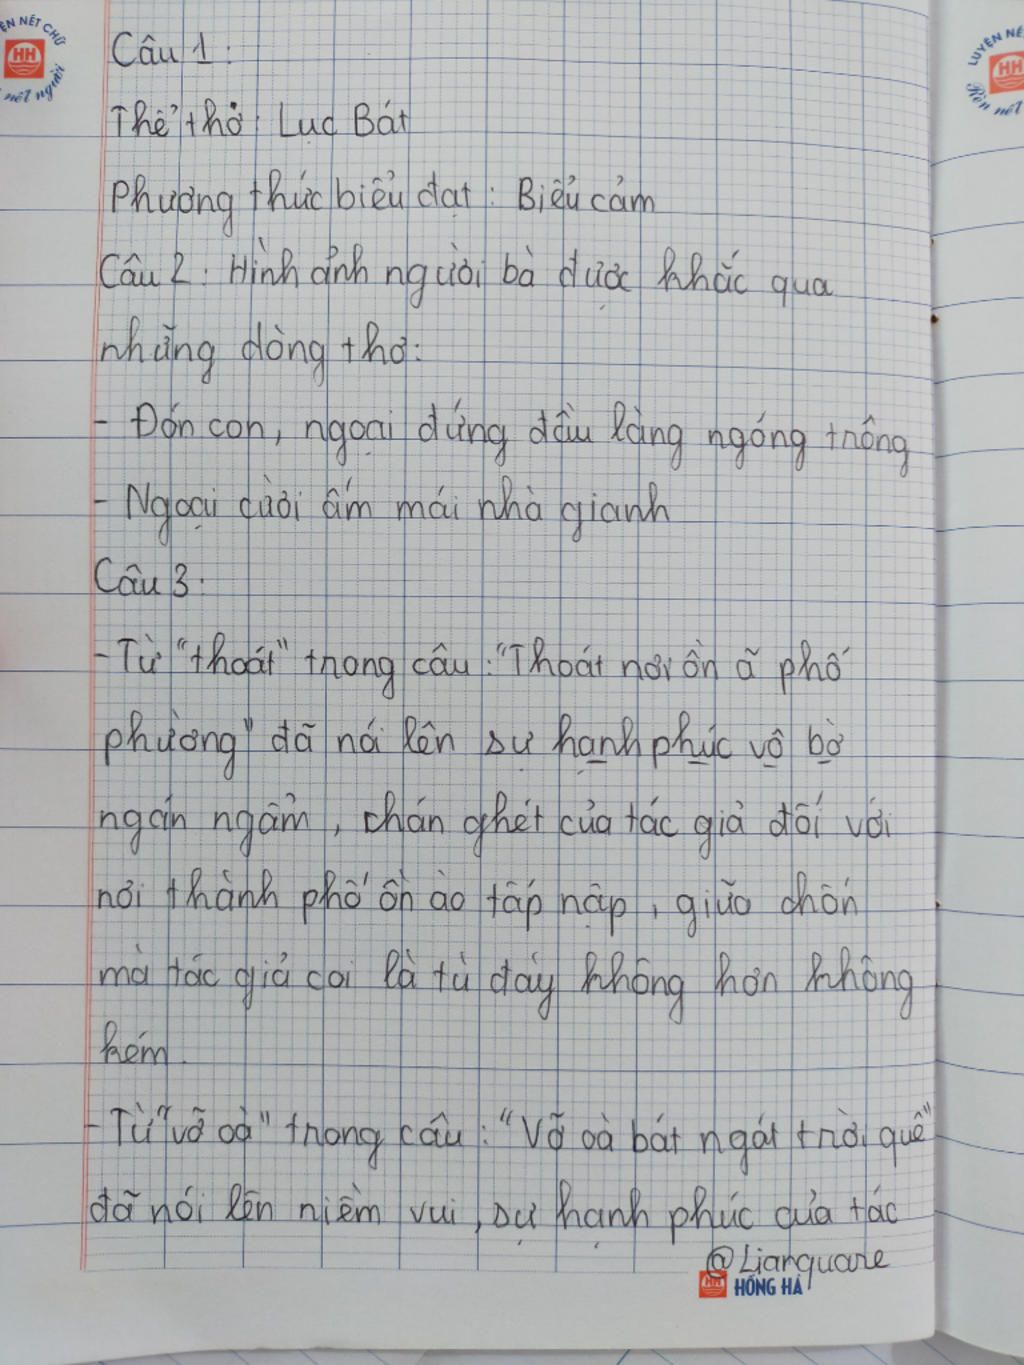 LUYỆN NÉT CHỮ
HH
nết người
LUYỆN NÉ
HH
Rèn nết
Câu 1:
Thể thơ: Lục Bát
Phương thức biểu đạt: Biểu cảm
Câu 2: Hình ảnh người bà được khắc qua
những dòng thơ:
- Đón con, ngoại đứng đầu làng ngóng trông
- Ngoại cười ấm mái nhà gianh
Câu 3:
- Từ "thoát" trong câu: "Thoát nơi ồn ã phố
phường" đã nói lên sự hạnh phúc vô bờ
ngán ngẩm, chán ghét của tác giả đối với
nơi thành phố ồn ào tấp nập, giữa chốn
mà tác giả coi là tù đáy không hơn không
kém.
- Từ "vỡ oà" trong câu: "Vỡ oà bát ngát trời quê"
đã nói lên niềm vui, sự hạnh phúc của tác
@Lianquare
HH HỒNG HÀ